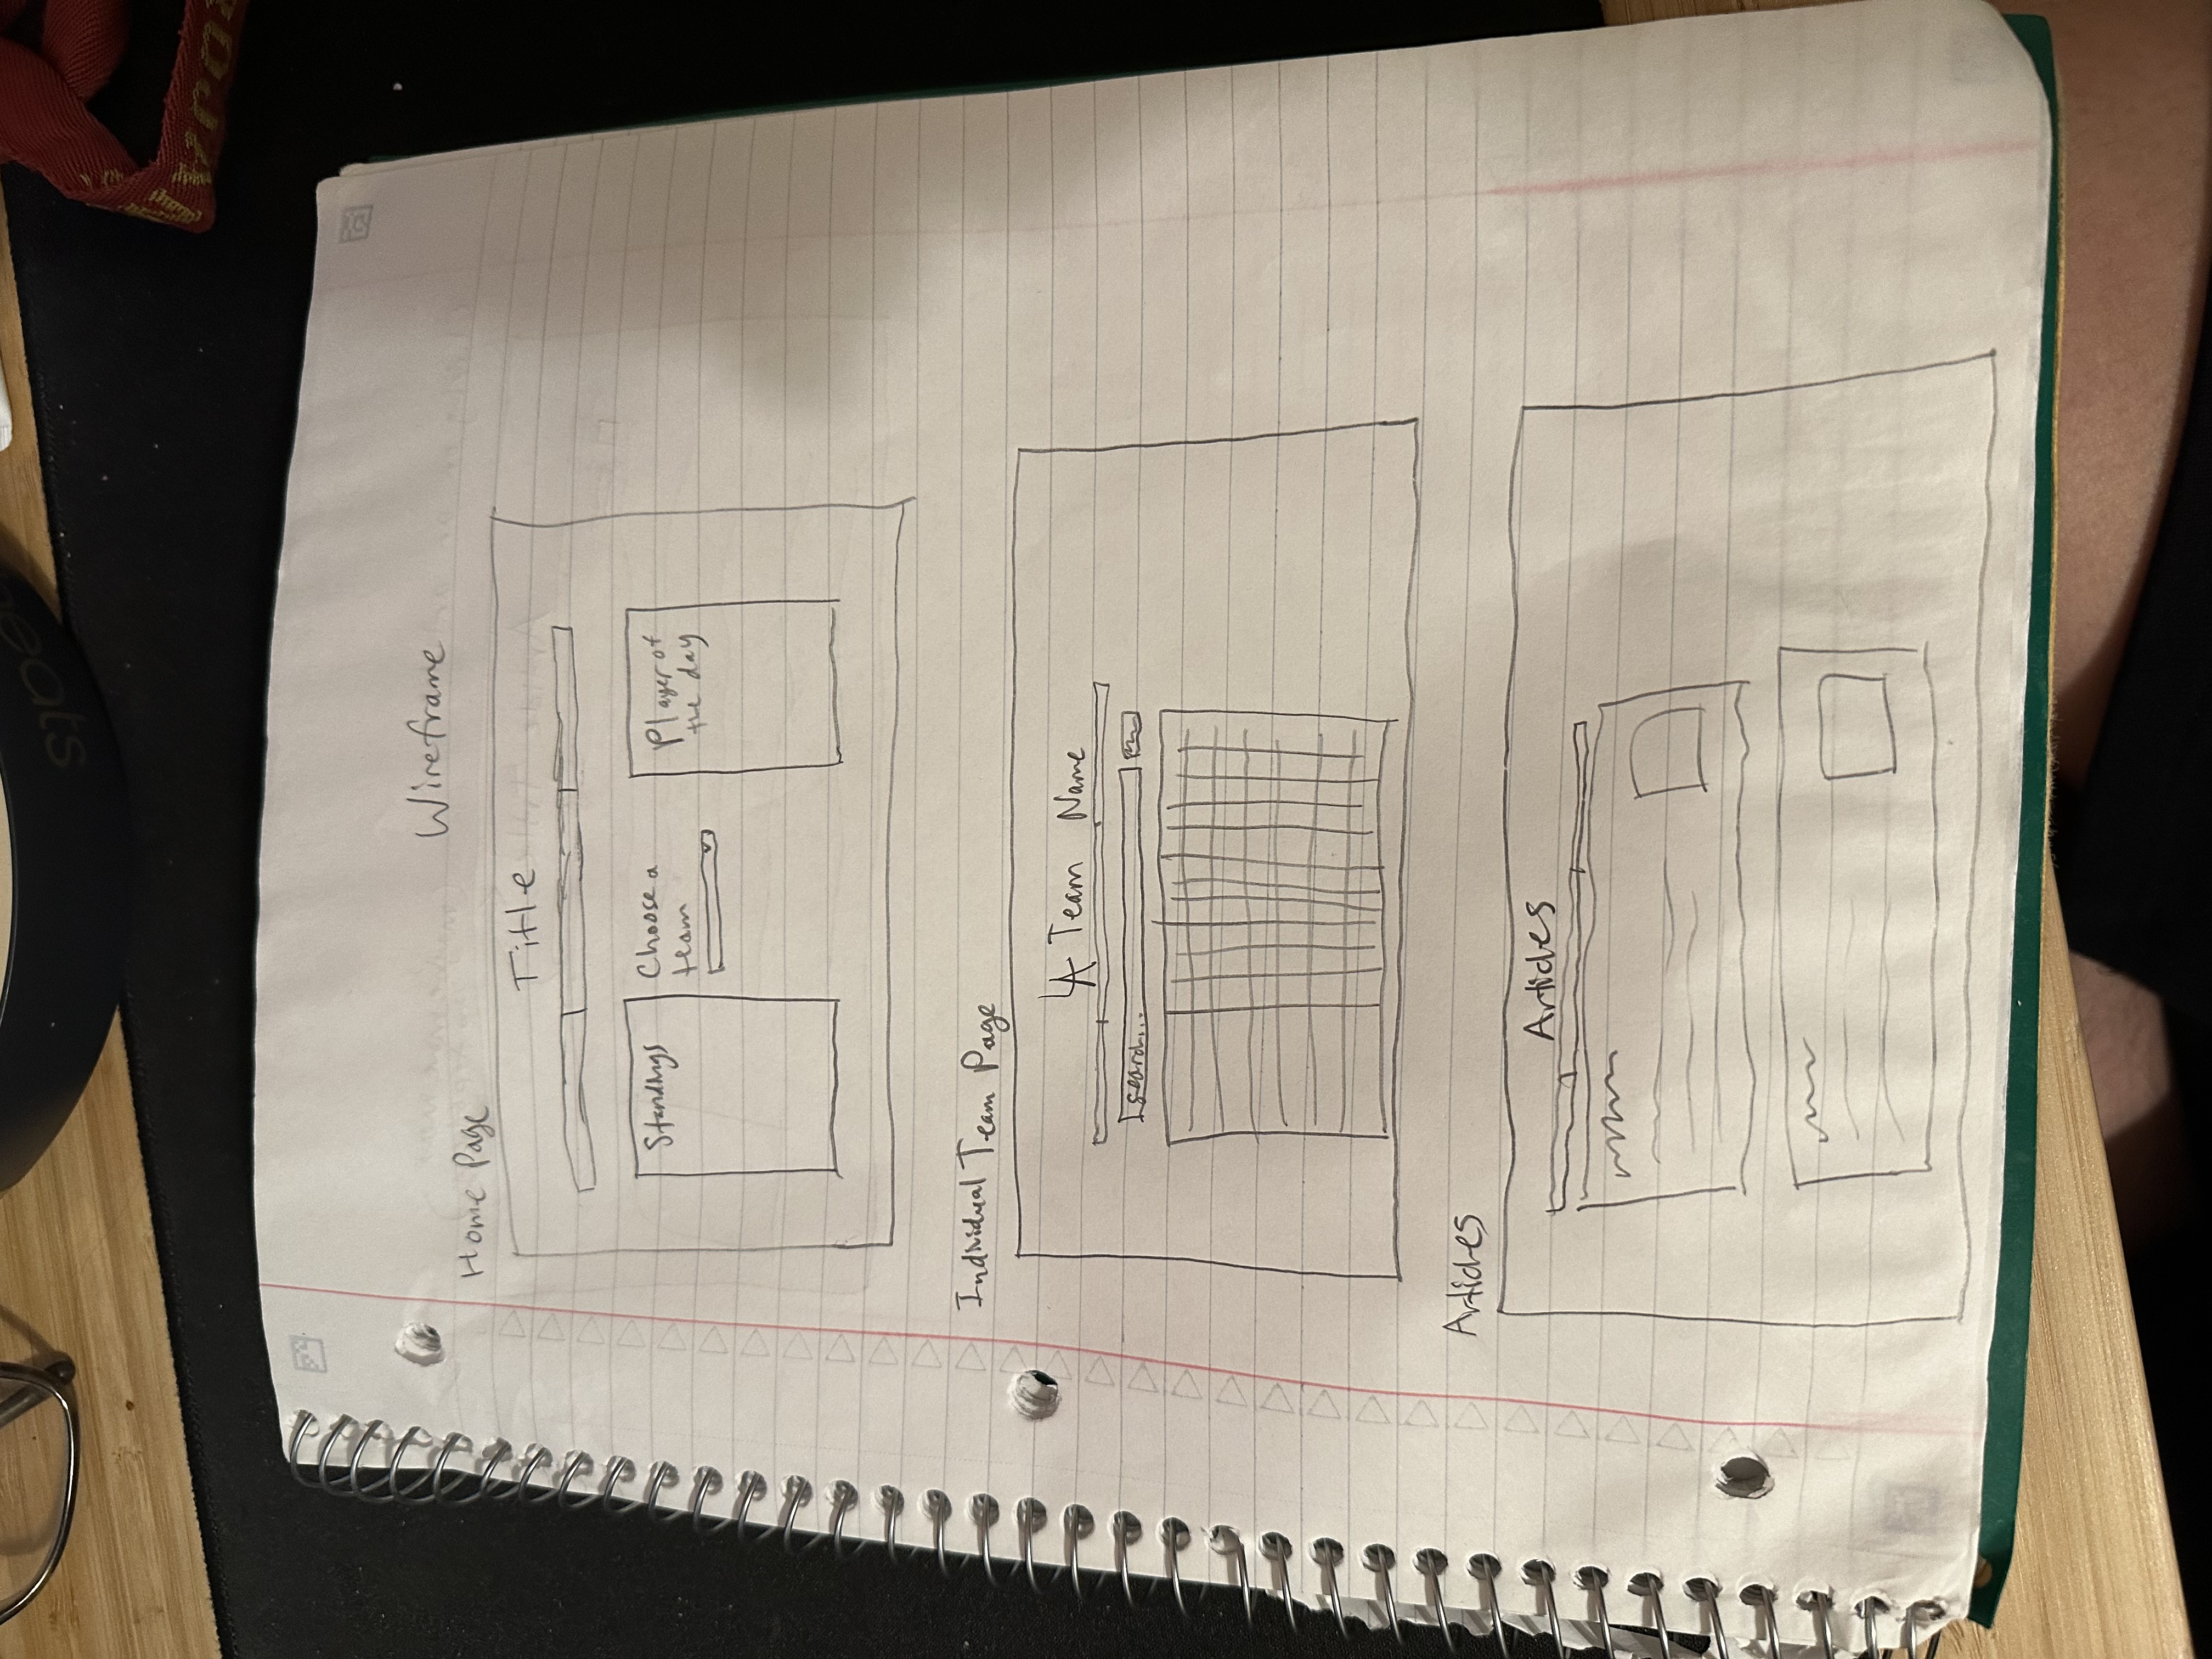 eats
Wireframe
Home Page
Title
Standings
Choose a
team
Player of
the day
Individual Team Page
LA Team Name
search...
Articles
Articles